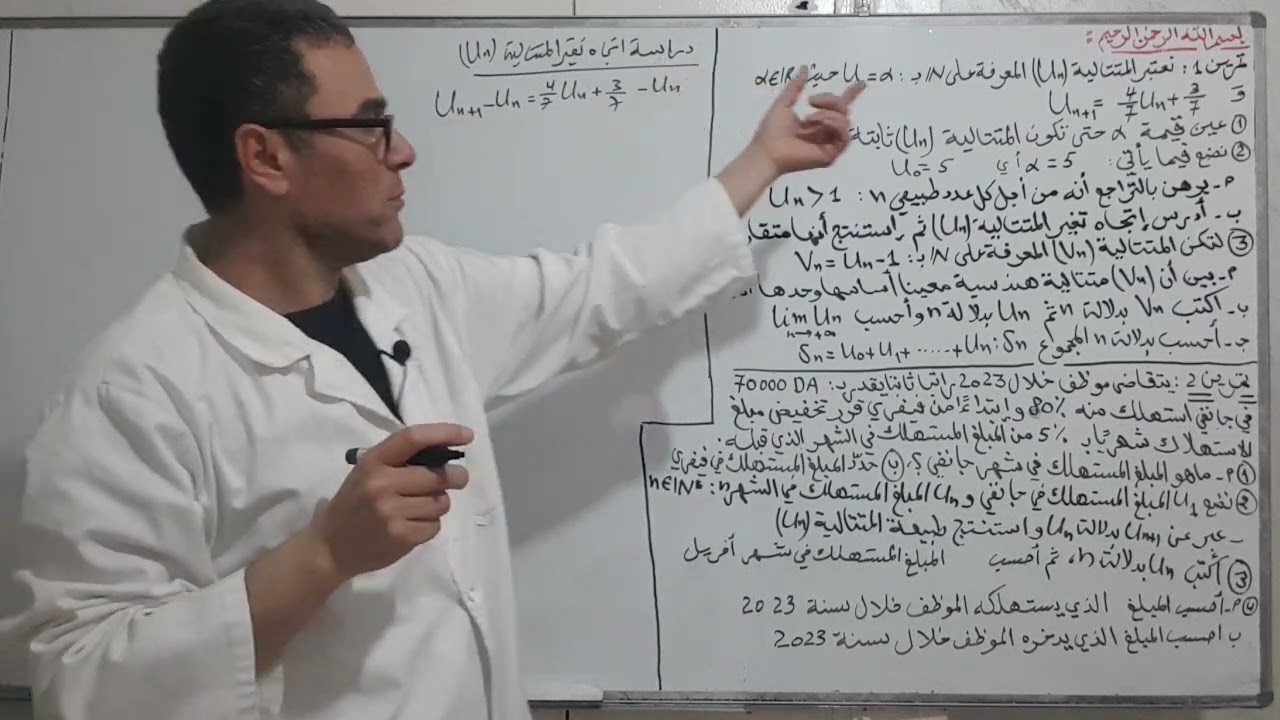 بسم الله الرحمن الرحيم :
تمرين 1 : نعتبر المتتالية (Un) المعرفة على N بـ : U = α حيث α∈R
و Un+1 = 4/7 Un + 3/7
① عين قيمة α حتى تكون المتتالية (Un) ثابتة
② نضع فيما يأتي : α = 5 أي U0 = 5
م - برهن بالتراجع أنه من أجل كل عدد طبيعي n : Un > 1
ب - أدرس إتجاه تغير المتتالية (Un) ثم استنتج أنها متقا
③ لتكن المتتالية (Vn) المعرفة على N بـ : Vn = Un - 1
م - بين أن (Vn) متتالية هندسية معينا أساسها وحدها
ب - اكتب Vn بدلالة n ثم Un بدلالة n وأحسب lim Un n→+∞
جـ - أحسب بدلالة n المجموع Sn : Sn = U0 + U1 + ...... + Un
تمرين 2 : يتقاضى موظف خلال 2023 راتبا ثابتا يقدر بـ : 70000 DA
في جانفي استهلك منه 80% وإبتداءً من فيفري قرر تخفيض مبلغ
الاستهلاك شهريًا بـ 5% من المبلغ المستهلك في الشهر الذي قبله :
① م - ماهو المبلغ المستهلك في شهر جانفي ؟ ب حدد المبلغ المستهلك في فيفري
② نضع U1 المبلغ المستهلك في جانفي و Un المبلغ المستهلك في الشهر n : n∈N*
- عبر عن Un+1 بدلالة Un واستنتج طبيعة المتتالية (Un)
③ أكتب Un بدلالة n ، ثم أحسب المبلغ المستهلك في شهر أفريل
④ م - أحسب المبلغ الذي يستهلكه الموظف خلال سنة 2023
ب احسب المبلغ الذي يدخره الموظف خلال سنة 2023
دراسة اتجاه تغير المتتالية (Un)
Un+1 - Un = 4/7 Un + 3/7 - Un